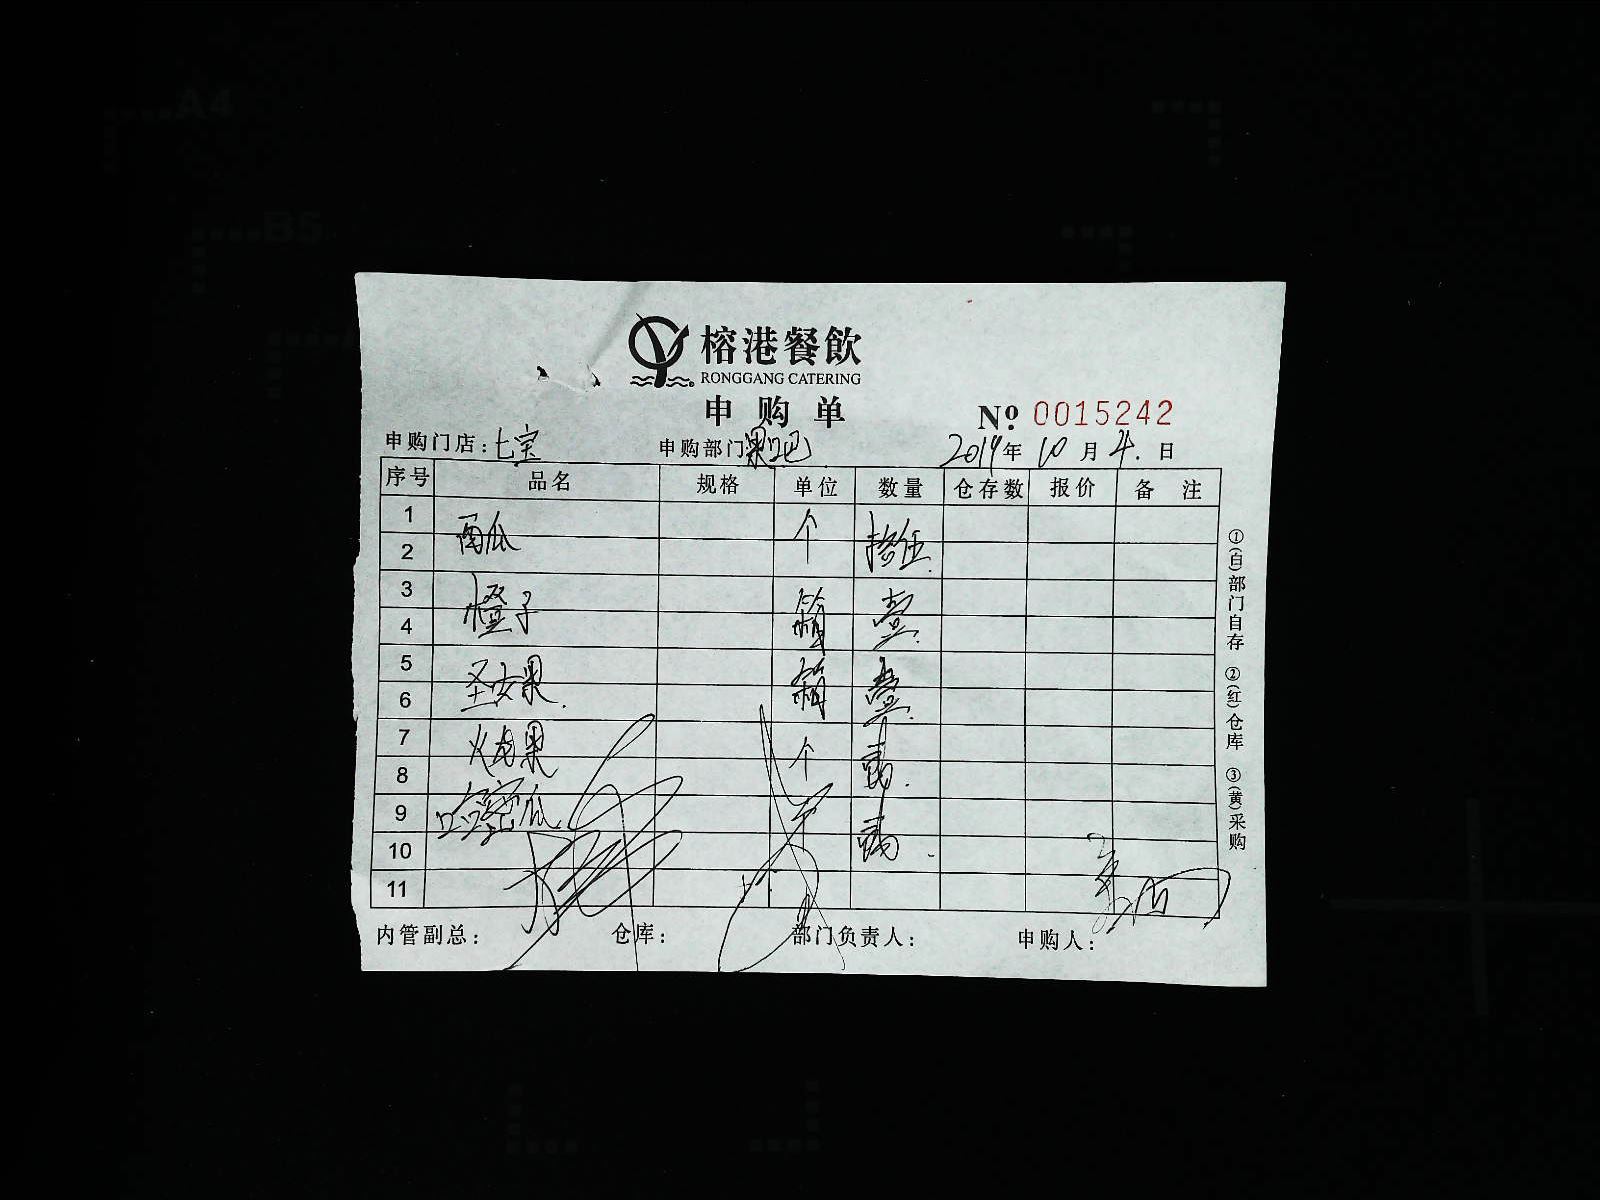 A4
B5
榕港餐飲
RONGGANG CATERING
申购单
Nº 0015242
申购门店：七宝 申购部门 果吧 2019年 10月 4.日
序号 品名 规格 单位 数量 仓存数 报价 备注
1
西瓜 个 拾伍.
2
3
橙子 箱 壹.
4
5
圣女果. 箱 壹.
6
7
火龙果 个
8
9
哈密瓜
10
11
内管副总： 仓库： 部门负责人： 申购人：
①(白)部门自存 ②(红)仓库 ③(黄)采购